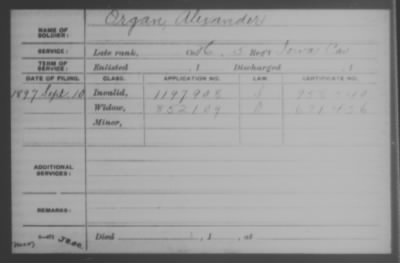 Organ, Alexander
NAME OF SOLDIER:
SERVICE: Late rank, Co. 3 Reg't Iowa Cav
TERM OF SERVICE: Enlisted , 1 Discharged , 1
DATE OF FILING. CLASS. APPLICATION NO. LAW. CERTIFICATE NO.
1897 Sept 10 Invalid, 1197908
Widow, 852109
Minor,
ADDITIONAL SERVICES:
REMARKS:
Died , 1 , at